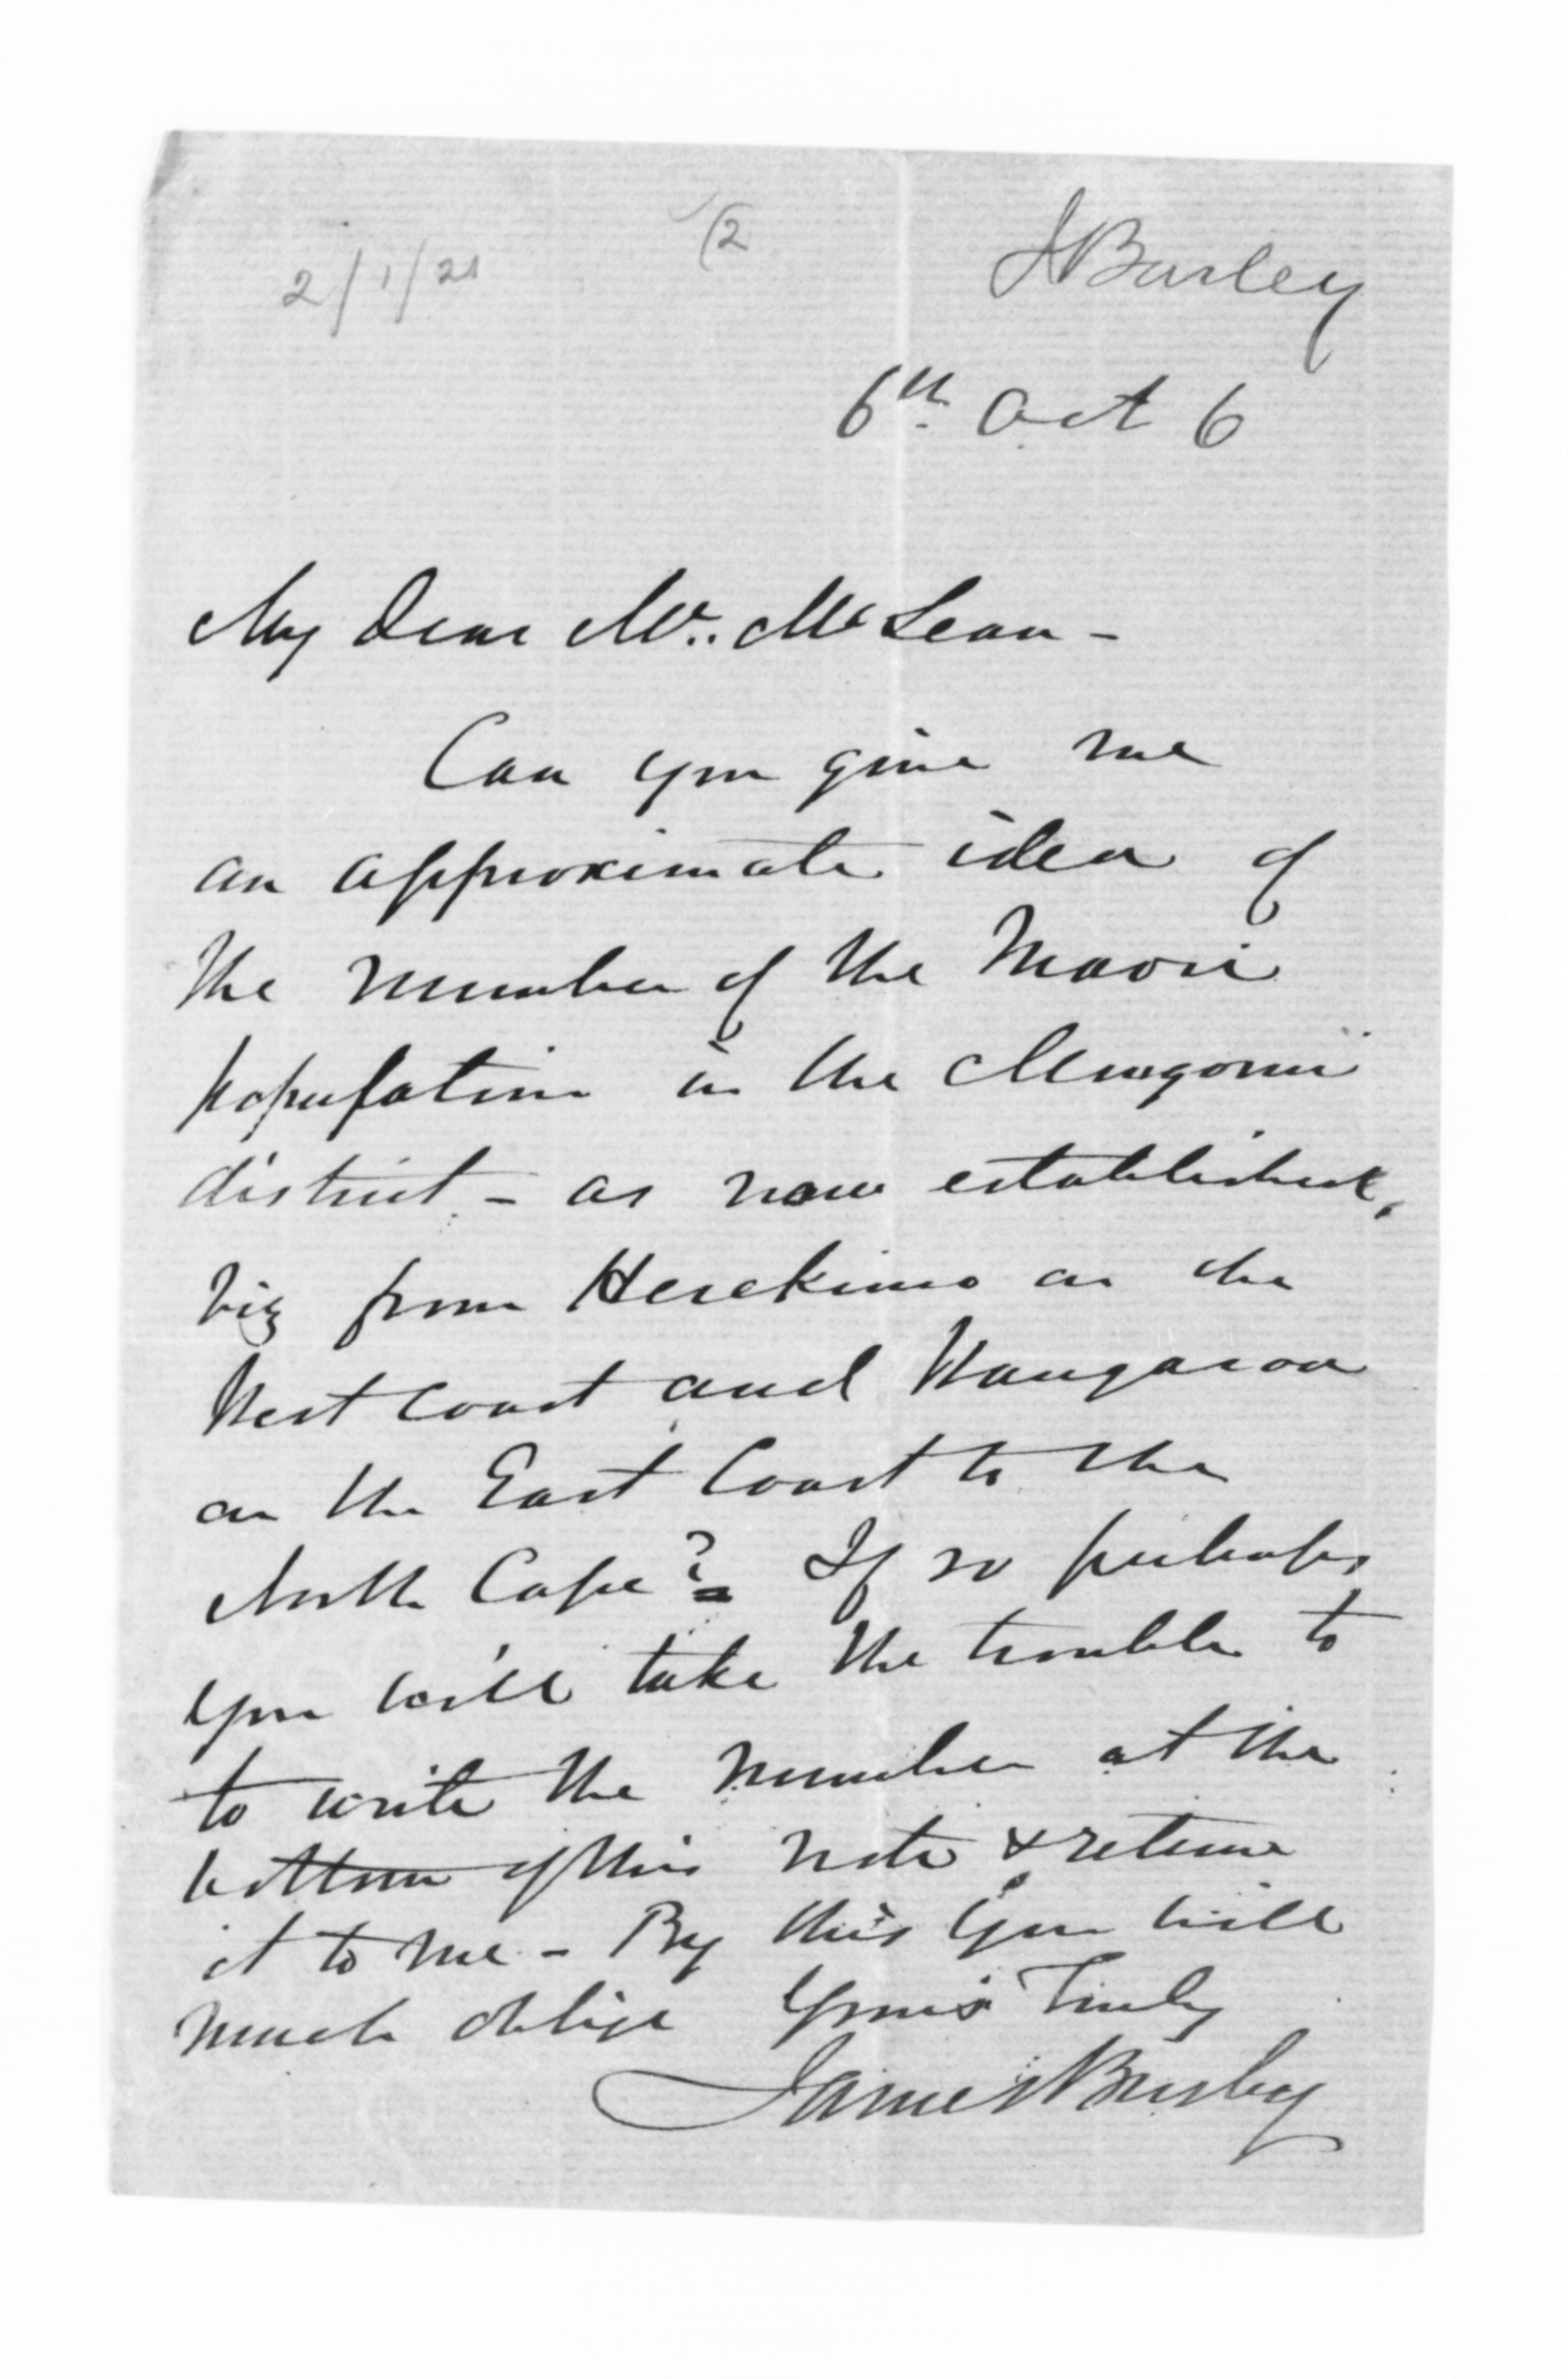 2/1/21
(2
JBusley
6th. Oct 6
My Dear Mr.. McLean -
Can you give me
an approximate idea of
the number of the Maori
population in the Mungonui
district - as now established,
viz from Herekino on the
West Coast and Wangaroa
on the East Coast to the
North Cape? If so perhaps
you will take the trouble to
to write the number at the
bottom of this note & return
it to me - By this you will
much oblige Yours Truly
James Busby